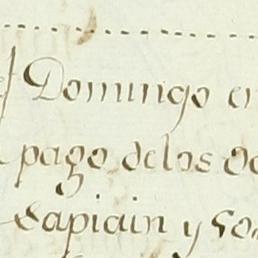 Domingo en
pago delos
capiain y